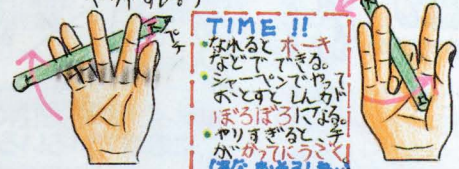 やりすい。)
ペチ
TIME !!
・なれると ホーキ
などでできる。
・シャーペンでやって
おとすと しんガ
ぼろぼろになる。
・やりすぎると、手
がかってにうごく